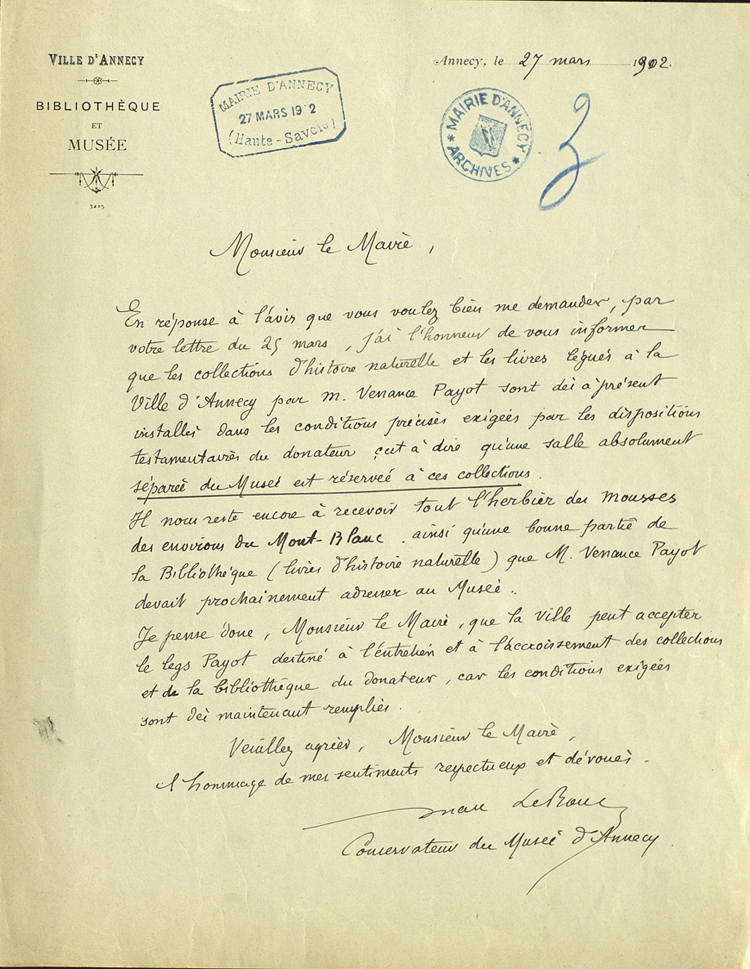 VILLE D'ANNECY
BIBLIOTHÈQUE
ET
MUSÉE
MAIRIE D'ANNECY
27 MARS 19 2
(Haute-Savoie)
Annecy, le 27 mars 1902.
MAIRIE D'ANNECY
ARCHIVES
Monsieur le Mairè,
En réponse à l'avis que vous voulez bien me demander, par
votre lettre du 25 mars, j'ai l'honneur de vous informer
que les collections d'histoire naturelle et les livres légués à la
Ville d'Annecy par M. Venance Payot sont dès à présent
installés dans les conditions précises exigées par les dispositions
testamentaires du donateur c'est à dire qu'une salle absolument
séparée du Museé est réserveé à ces collections.
Il nous reste encore à recevoir tout l'herbier des mousses
des environs du Mont-Blanc. ainsi qu'une bonne partie de
la Bibliothèque (livres d'histoire naturelle) que M. Venance Payot
devait prochainement adresser au Museé.
Je pense donc, Monsieur le Mairè, que la ville peut accepter
le legs Payot destiné à l'entretien et à l'accroissement des collections
et de la bibliothèque du donateur, car les conditions exigées
sont dès maintenant remplies.
Veuillez agréer, Monsieur le Mairè,
l'hommage de mes sentiments respectueux et dévoués.
Marc Le Roux
Conservateur du Museé d'Annecy